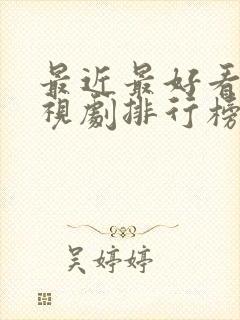 最近最好看
視劇排行榜
吳婷婷